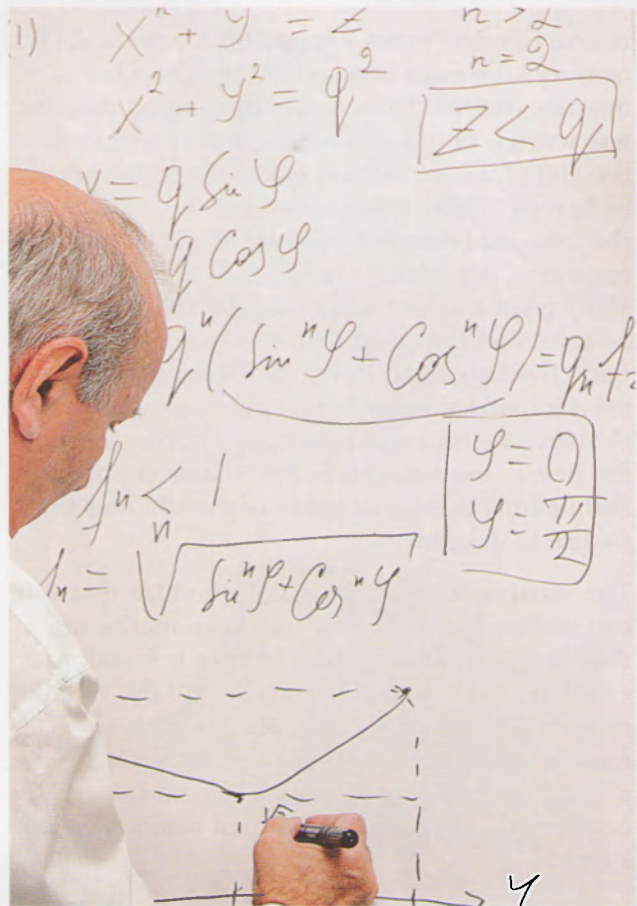 1) xⁿ + y = z n > 2
x² + y² = q² n = 2
z < q
= q Sin φ
q Cos φ
qⁿ (Sinⁿφ + Cosⁿφ) = qₙ f
fₙ < 1
φ = 0
φ = π/2
fₙ = ⁿ√(Sinⁿφ + Cosⁿφ)
φ